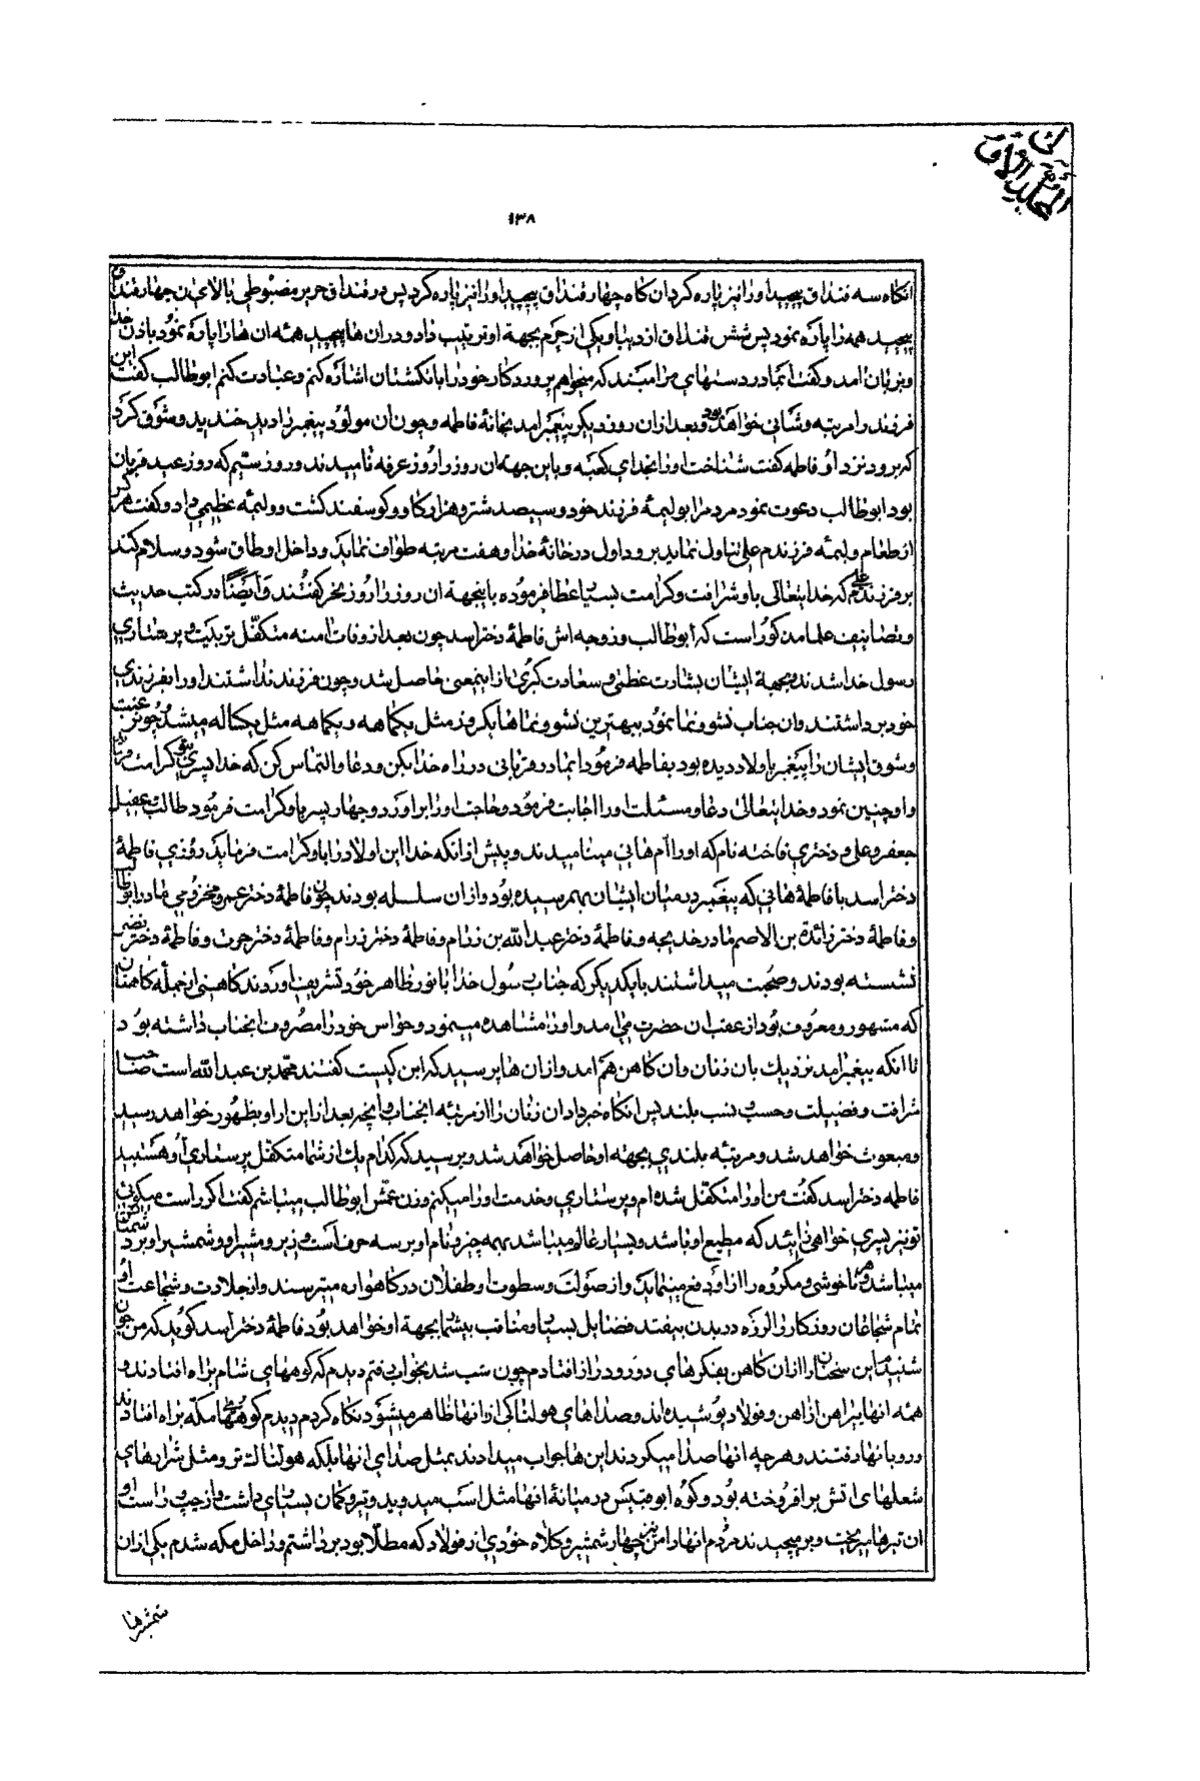 المجلد الاول
۱۳۸
انکاه سه قنداق پیچید او را نیز پاره کرد ان کاه چهار قنداق پیچید او را نیز پاره کرد پس در قنداق حریر مضبوطی بالای ان چهار قنداق
پیچید همه را پاره نمود پس شش قنداق از دیبا و یکی از چرم بجهة او ترتیب داد و در ان ها پیچید همه ان ها را پاره نمود باذن خدا
و بزبان امد و گفت ایمادر دستهای مرا مبند که میخواهم پروردکار خود را با نکشتان اشاره کنم و عبادت کنم ابو طالب گفت این
فرزند را مرتبه و شانی خواهد بود و بعد از ان روز دیگر پیغمبر امد بخانهٔ فاطمه و چون ان مولود پیغمبر را دید خندید و شوق کرد
که برود نزد او فاطمه گفت شناخت او را بخدای کعبه و باین جهة ان روز را روز عرفه نامیدند و روز سیم که روز عید قربان
بود ابو طالب دعوت نمود مردم را بولیمهٔ فرزند خود و سیصد شتر و هزار کاو و کوسفند کشت و ولیمهٔ عظیمی داد و گفت هر که
از طعام ولیمهٔ فرزندم علی تناول نماید برود اول در خانهٔ خدا و هفت مرتبه طواف نماید و داخل اوطاق شود و سلام کند
بر فرزندم علی که خدایتعالی باو شرافت و کرامت بسیار عطا فرموده باینجهة ان روز را روز نحر گفتند و ایضًا در کتب حدیث
و تصانیف علما مذکور است که ابو طالب و زوجه اش فاطمهٔ دختر اسد چون بعد از وفات امنه متکفل تربیت و پرستاری
رسول خدا شدند و بجهة ایشان بشارت عظمی و سعادت کبری از اینمعنی حاصل شد و چون فرزند نداشتند او را بفرزندی
خود برداشتند و ان جناب نشو و نما نمود ببهترین نشو و نماها یکروز مثل یکماهه و یکماهه مثل یکساله میشد و چون رغبت
و شوق ایشان را پیغمبر باولاد دیده بود بفاطمه فرمود ایمادر قربانی در راه خدا بکن و دعا و التماس کن که خدا پسری بتو کرامت فرماید
و او چنین نمود و خدایتعالی دعا و مسئلت او را اجابت فرمود و حاجت او را براورد و چهار پسر باو کرامت فرمود طالب و عقیل
جعفر و علی و دختری فاخته نام که او را ام هانی مینامیدند و پیش از انکه خدا این اولاد را باو کرامت فرماید روزی فاطمهٔ
دختر اسد با فاطمهٔ هائی که پیغمبر در میان ایشان بهم رسیده بود و از ان سلسله بودند چون فاطمهٔ دختر عمرو مخزومی مادر ابو طالب
و فاطمهٔ دختر زائدة بن الاصم مادر خدیجه و فاطمهٔ دختر عبد الله بن رزام و فاطمهٔ دختر زدام و فاطمهٔ دختر حرث و فاطمهٔ دختر نضر
نشسته بودند و صحبت میداشتند با یکدیگر که جناب رسول خدا با نور ظاهر خود تشریف اوردند کاهنی از جملهٔ کاهنان
که مشهور و معروف بود از عقب ان حضرت می امد و او را مشاهده مینمود و حواس خود را مصروف انجناب داشته بود
تا انکه پیغمبر امد نزدیك بان زنان و ان کاهن هم امد و از ان ها پرسید که این کیست گفتند محمد بن عبد الله است صاحب
شرافت و فضیلت و حسب و نسب بلند پس انکاه خبر داد ان زنان را از مرتبهٔ انجناب و انچه بعد از این از او بظهور خواهد رسید
و مبعوث خواهد شد و مرتبهٔ بلندی بجهة او حاصل خواهد شد و پرسید که کدام یك از شما متکفل پرستاری او هستید
فاطمه دختر اسد گفت من او را متکفل شده ام و پرستاری و خدمت او را میکنم و زن عمش ابو طالب میباشم گفت اکر راست میگوئی
تو نیز پسری خواهی زائید که مطیع او باشد و بسیار عالم میباشد بهمه چیز و نام او بر سه حرف است وزیر و مشیر او و شمشیر او بر دشمنان
میباشد و هر ناخوشی و مکروه را از او دفع مینماید و از صولت و سطوت او طفلان در کاهواره میترسند و از جلادت و شجاعت او
تمام شجاعان روزکار را لرزه در بدن بیفتد فضایل بسیار و مناقب بیشمار بجهة او خواهد بود فاطمهٔ دختر اسد کوید که من چون
شنیدم این سخنان را از ان کاهن بفکرهای دور و دراز افتادم چون شب شد بخواب رفتم دیدم که کوههای شام براه افتادند و
همه انها پیراهن از اهن و فولاد پوشیده اند و صداهای هولناکی از انها ظاهر میشود نکاه کردم دیدم کوههای مکه براه افتادند
و رو بانها رفتند و هر چه انها صدا میکردند این ها جواب میدادند بمثل صدای انها بلکه هولناك تر و مثل شرارهای
شعلهای اتش برافروخته بود و کوه ابو قبیس در میانهٔ انها مثل اسب میدوید و تیر و کمان بسیاری داشت و از چپ و راست او
ان تیرها میریخت و برمیچیدند مردم انها را من نیز چهار شمشیر و کلاه خودی از فولاد که مطلا بود برداشتم و داخل مکه شدم یکی از ان
شمشیرها